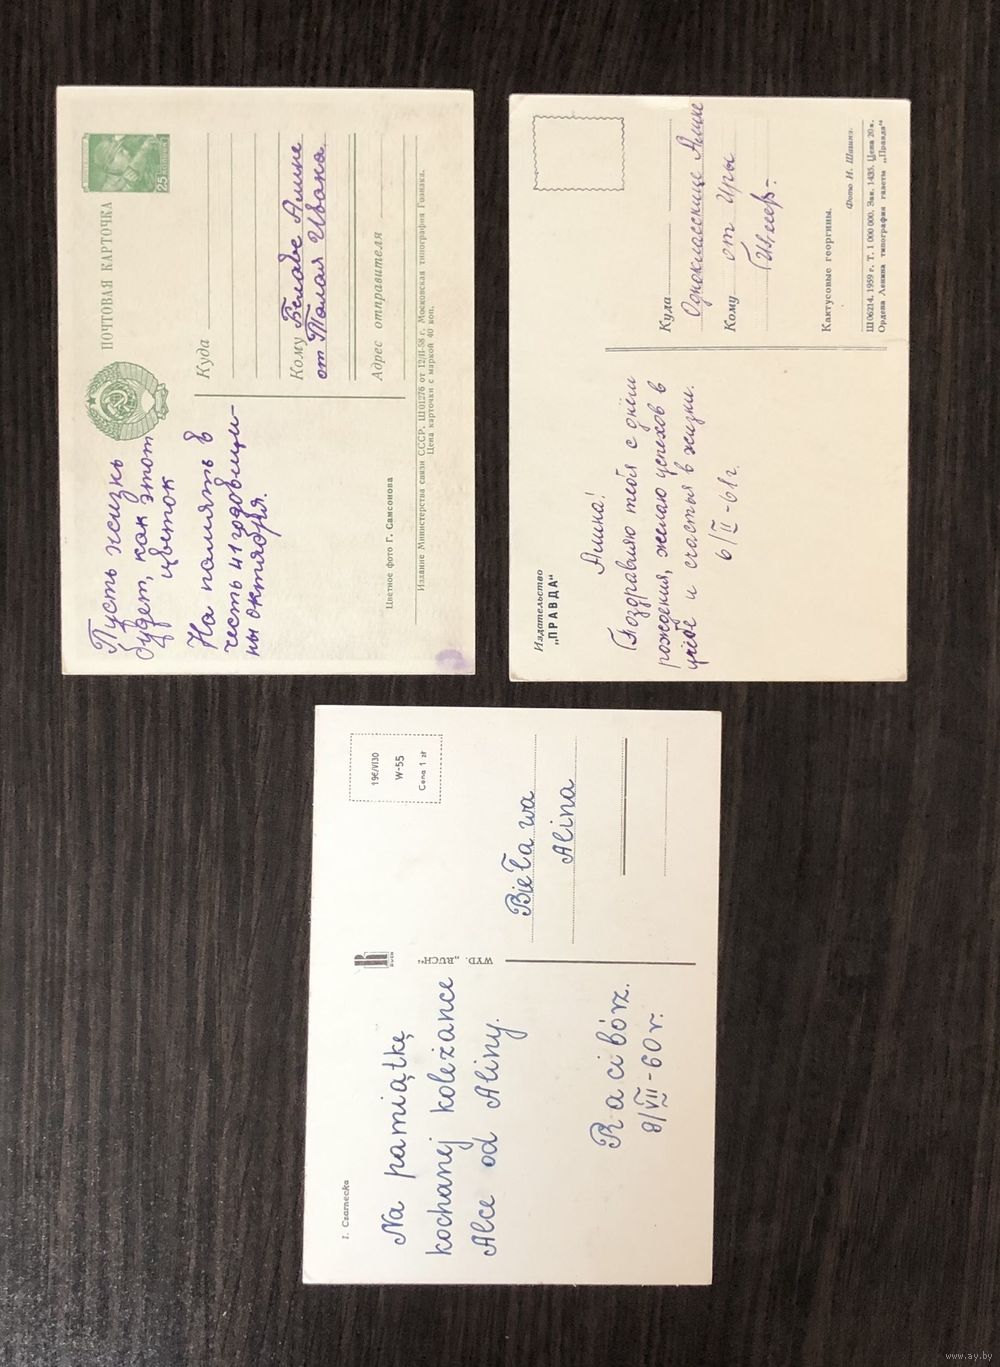 25 КОПЕЕК
ПОЧТОВАЯ КАРТОЧКА
Пусть жизнь
будет, как этот
цветок
На память в
честь 41 годовщи-
ны октября.
Куда
Кому Белаве Алине
от Толая Ивана
Адрес отправителя
Цветное фото Г. Самсонова
Издание Министерства связи СССР. Ш01276 от 12/II-58 г. Московская типография Гознака.
Цена карточки с маркой 40 коп.
Издательство
„ПРАВДА“
Алина!
Поздравляю тебя с днём
рождения, желаю успехов в
учёбе и счастья в жизни.
6/II-61г.
Куда
Однокласснице Алине
Кому от Иры
Кактусовые георгины.
Фото Н. Шагина.
Ш 06214. 1959 г. Т. 1 000 000. Зак. 1435. Цена 20 к.
Ордена Ленина типография газеты „Правда“
I. Czarnecka
R
RUCH
WYD. „RUCH“
W-55
Cena 1 zł
Na pamiątkę
kochanej koleżance
Alce od Aliny.
Racibórz.
8/VII-60r.
Bieława
Alina
www.ay.by